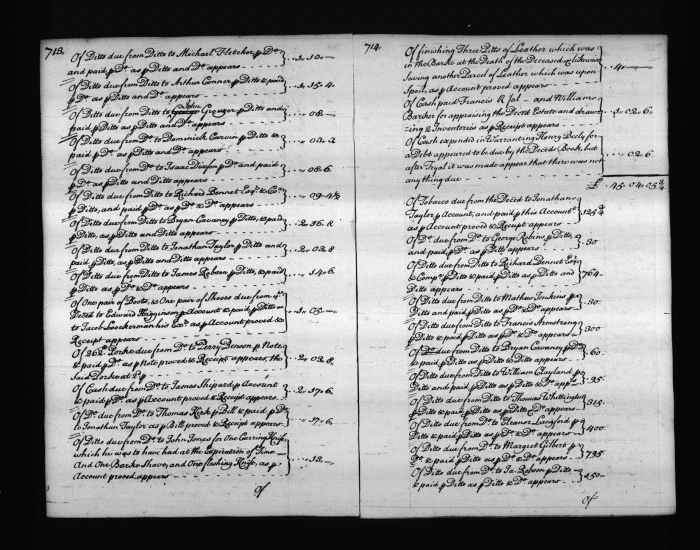 713.
Of Ditto due from Ditto to Michael Fletcher p Do
and paid p Do as p Ditto and Do appears - - - .. 1. 10 -
Of Ditto due from Ditto to Arthur Connor p Ditto & paid
p Do as p Ditto and Ditto appears - - - .. 1. 15. 4.
Of Ditto due from Ditto to John Granger p Ditto and
paid p Ditto as p Ditto and Ditto appears - - .. 08 -
Of Ditto due from Ditto to Dominick Carvin p Ditto &
paid p Do as p Ditto and Do appears - - -
Of Ditto due from Ditto to Isaac Dixon p Do and paid
p Do as p Ditto and Ditto appears - - - .. 08. 6.
Of Ditto due from Ditto to Richard Bennet Esqr & Co
p Ditto, and paid p Do as p Do & Do appears - .. 09. 4½
Of Ditto due from Ditto to Bryan Cavaney p Ditto, & paid
p Ditto, as p Ditto and Ditto appears - - - .. 2. 16. 8.
Of Ditto due from Ditto to Jonathan Taylor p Ditto and
paid p Ditto, as p Ditto and Ditto appears - - .. 2. 02. 8
Of Ditto due from Ditto to James Robson p Ditto, & paid
p Ditto as p Do & Do appears - - - .. 14. 6.
Of One pair of Boots, & One pair of Shoes due from ye
Deced to Edward Higginson p Account & paid p Ditto
to Jacob Loockerman his Exor as p Account proved &
Receipt appears - - - .. 1. 05 -
Of 262 lb Porke due from Do to Perry Benson p Note
& paid p Do as p Note proved & Receipt appears, the
said Porke at
Of Cash due from Do to James Shipard p Account
& paid p Do as p Account proved & Receipt appears .. 2. 17. 6.
Of Do due from Do to Thomas p Bill & paid p Do
to Jonathan Taylor as p Bill proved & Receipt appears .. 17. 6
Of Ditto due from Do to John Jones for One Carving Knife
which he was to have had at the Expiration of Time
And One Barke Shave, and One fleshing Knife, as p
Account proved appears - - - .. 13. -
Of
714.
Of finishing Three Pitts of Leather which was
in the Barke at the Death of the Deceased, & likewise
Saving another Parcel of Leather which was upon
Spoil, as p Account proved appears - - .. 4. -
Of Cash paid Francis and William
Barker for appraising the Deced Estate and draw
ing 2 Inventories as p Receipt appears - - .. 1. 02. 6.
Of Cash expended in Warranting Henry for
a Debt appeared to be due by the Deceds Book, but
after Tryal it was made appear that there was not
any thing due - - - .. 02. 6
£ 45. 04. 05¾
Of Tobacco due from the Deced to Jonathan
Taylor p Account, and paid p this Accomt
as p Account proved & Receipt appears -
Of Do due from Do to George Robins p Ditto,
and paid p Do as p Ditto appears - - 30
Of Ditto due from Ditto to Richard Bennet Esqr
& Compa p Ditto & paid p Ditto as p Ditto and
Ditto appears - - - 764.
Of Ditto due from Ditto to Mathew Jenkins p
Ditto and paid p Ditto as p Do & Do appears - 30.
Of Ditto due from Ditto to Francis Armstrong
p Ditto & paid p Ditto as p Ditto & Do appears - 300
Of Ditto due from Do to Bryan Cavaney p Ditto
& paid p Ditto as p Ditto & Ditto appears - - 60.
Of Ditto due from Ditto to William Clayland p
Ditto and paid p Ditto as p Ditto & Do appears - 35.
Of Ditto due from Ditto to Thomas Whittington
p Ditto & paid p Ditto as p Ditto & Do appears - 315.
Of Ditto due from Do to Eleanor Langford p
Ditto & paid p Ditto as p Do & Do appears - 400.
Of Ditto due from Do to Margret Gilbert p
Do & paid p Ditto as p Ditto & Do appears - 795.
Of Ditto due from Do to Ja: Robson p Ditto
& paid p Ditto as p Ditto & Do appears - - 450.
Of